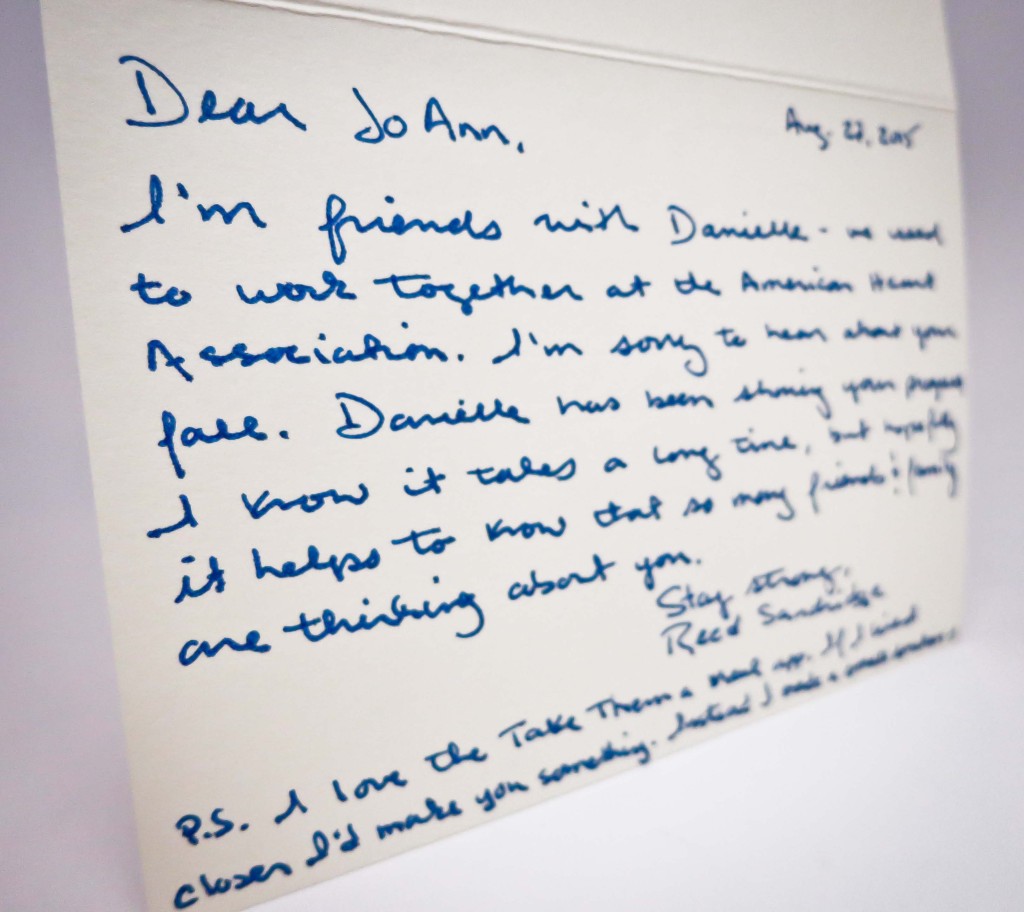 Dear JoAnn,
Aug. 27, 2015
I'm friends with Danielle - we used
to work together at the American Heart
Association. I'm sorry to hear about your
fall. Danielle has been sharing your progress
I know it takes a long time, but hopefully
it helps to know that so many friends & family
are thinking about you.
Stay strong,
Reed Sandridge
P.S. I love the Take Them a Meal app. If I lived
closer I'd make you something. Instead I made a small